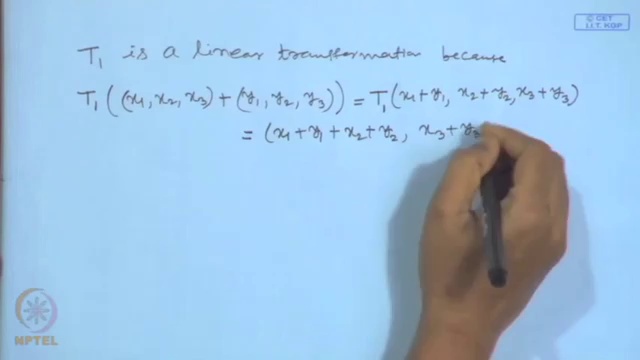 © CET
I.I.T. KGP
T₁ is a linear transformation because
T₁((x₁, x₂, x₃) + (y₁, y₂, y₃)) = T₁(x₁+y₁, x₂+y₂, x₃+y₃)
= (x₁+y₁+x₂+y₂, x₃+y₃
NPTEL